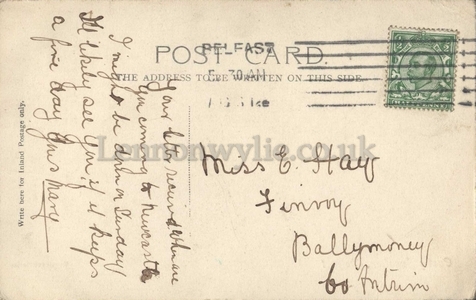 POST CARD.
THE ADDRESS TO BE WRITTEN ON THIS SIDE.
BELFAST
30 AM
Write here for Inland Postage only.
Your letter received when are
you coming to Newcastle
I might be down on Sunday
I'll likely see you if it keeps
a fine day yours Mary
Miss E. Hay
Finvoy
Ballymoney
Co Antrim
Lennonwylie.co.uk